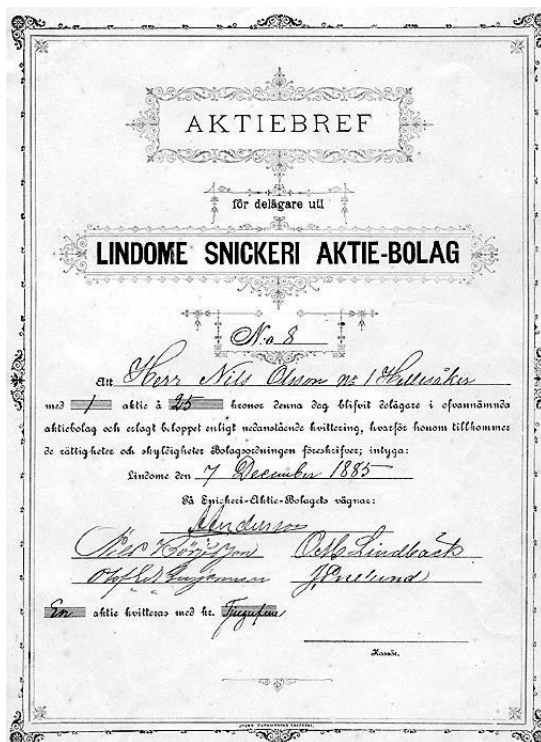 AKTIEBREF
för delägare uti
LINDOME SNICKERI AKTIE-BOLAG
N:o 8
Att Herr Nils Olsson nr 1 Hellesåker
med 1 aktie à 25 kronor denna dag blifvit delägare i ofvannämnda
aktiebolag och erlagt beloppet enligt nedanstående kvittering, hvarför honom tillkommer
de rättigheter och skyldigheter Bolagsordningen föreskrifver; intyga:
Lindome den 7 December 1885
På Snickeri-Aktie-Bolagets vägnar:
Anderson
Nils
Lindbäck
Olof
En aktie kvitteras med kr. Tjugufem
Kassör.